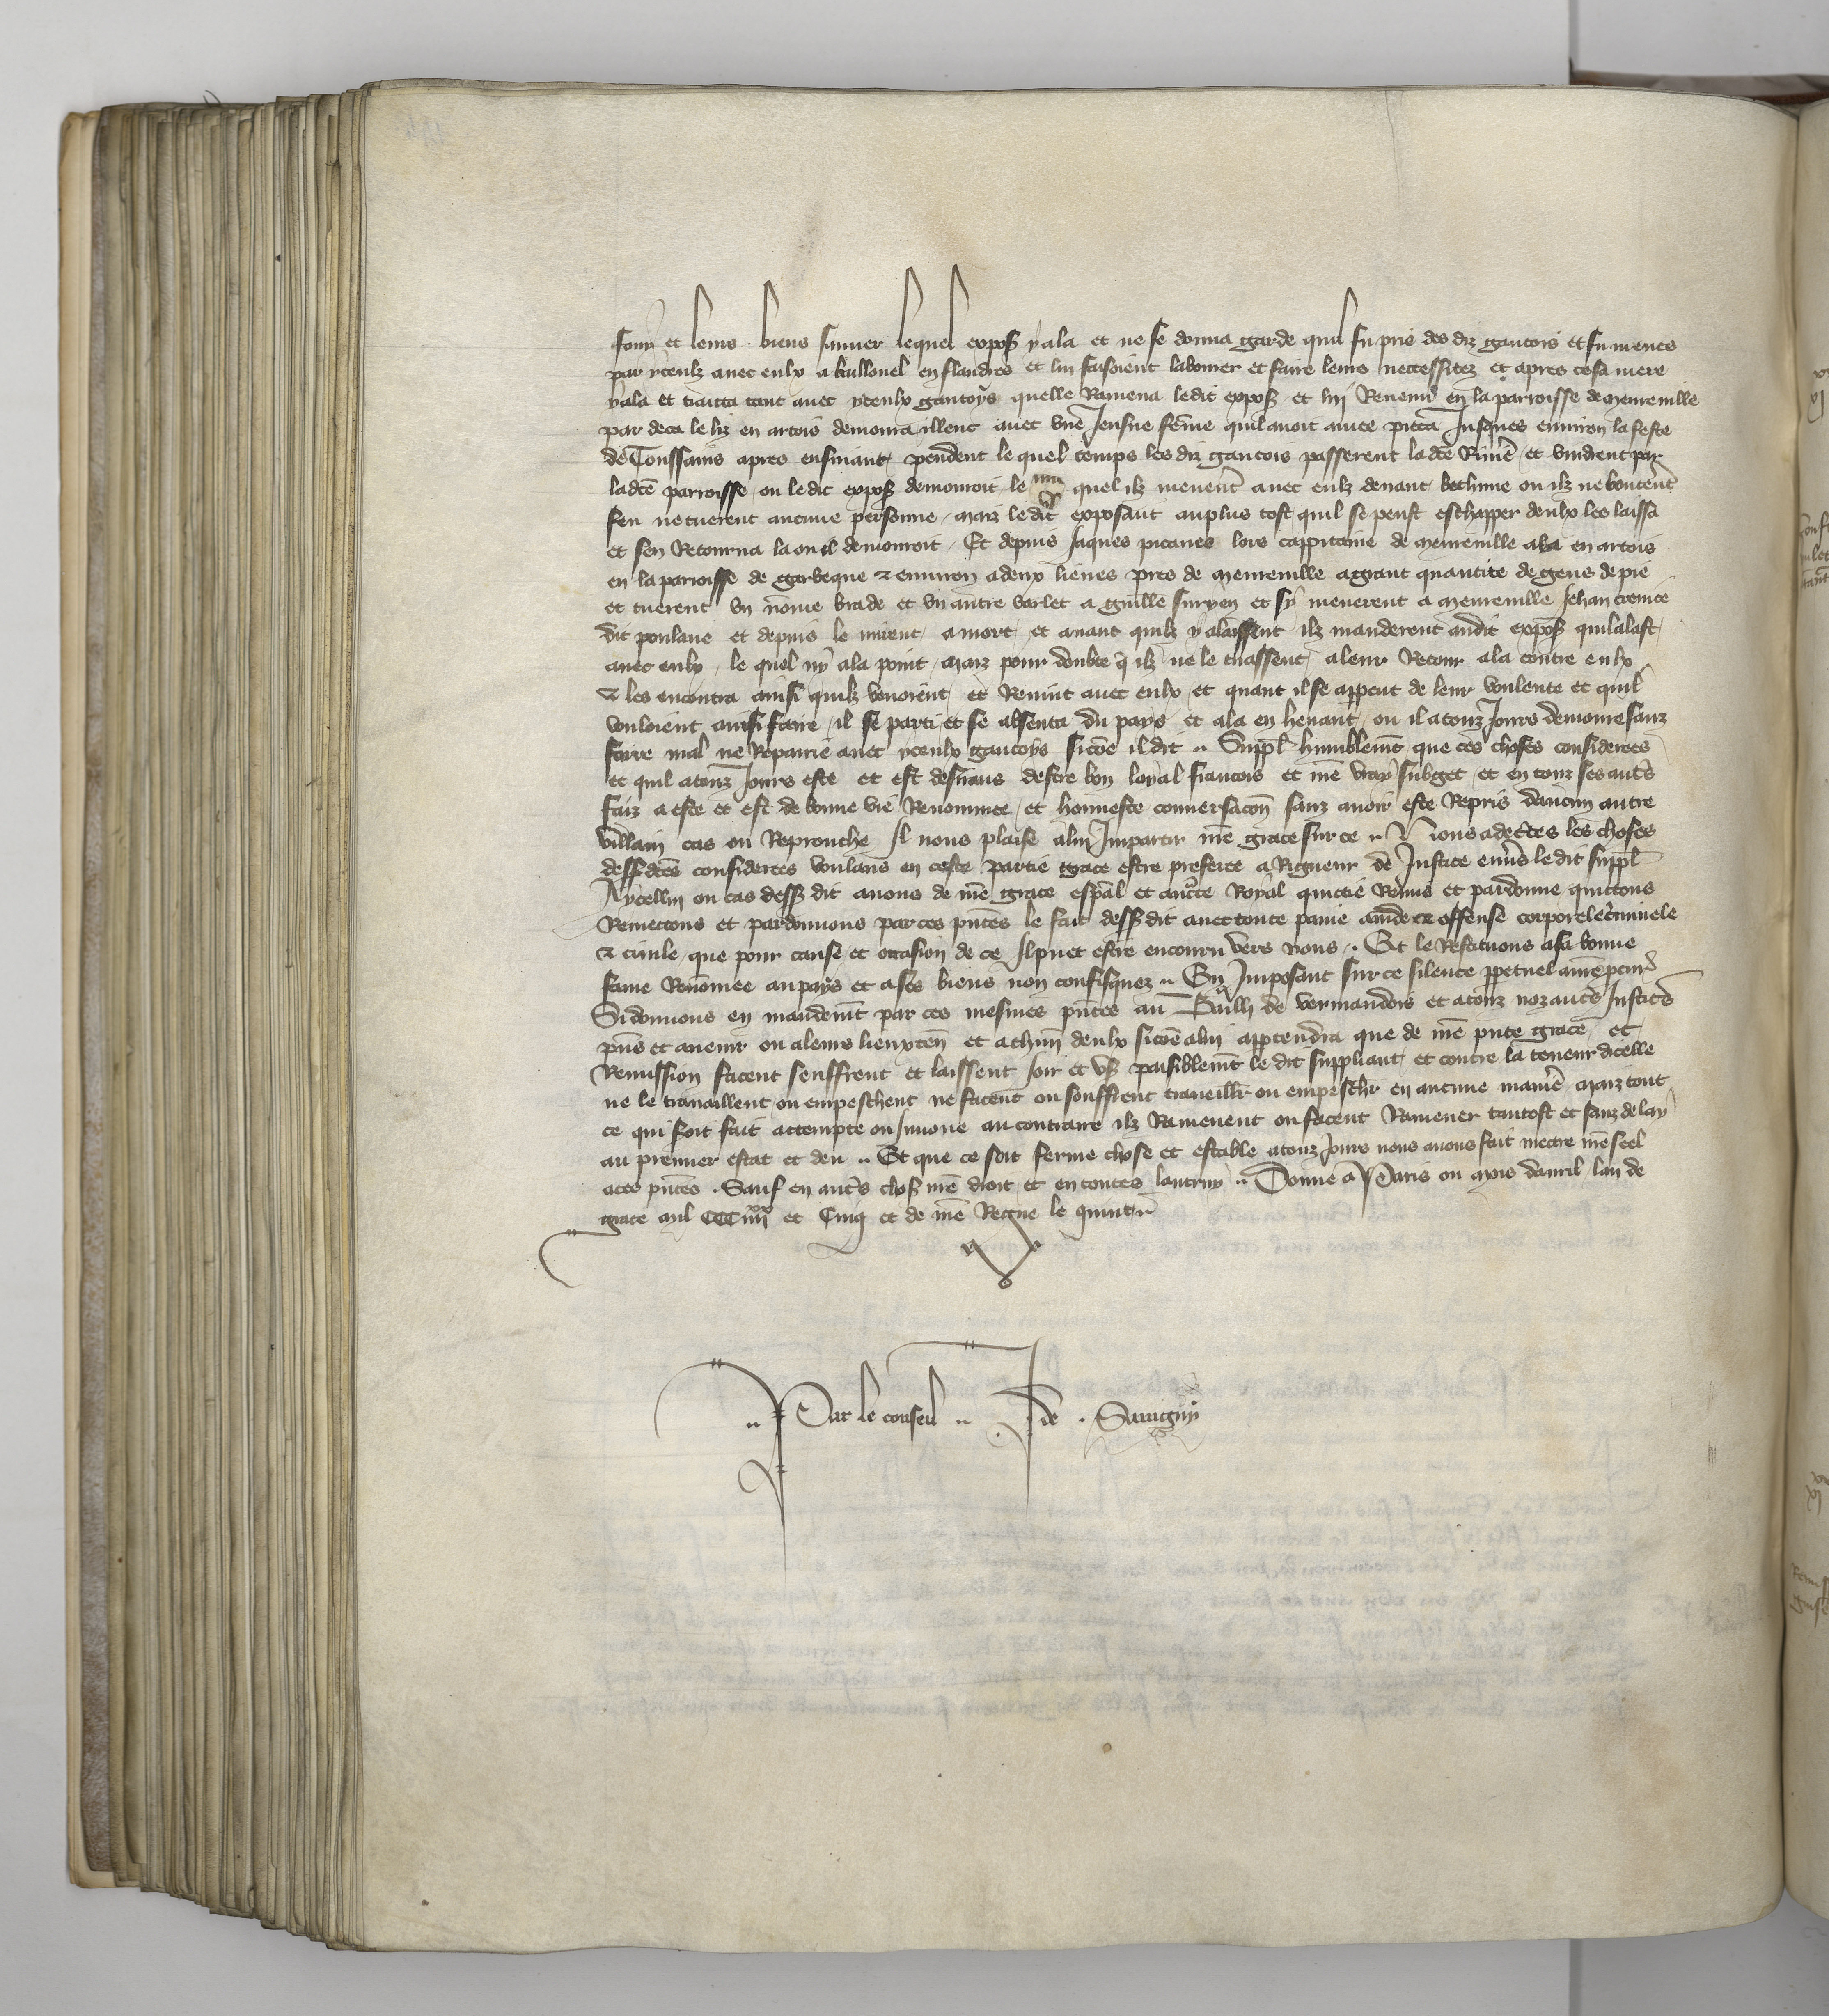 fouir et leurs biens sauver lequel expos̄ y ala et ne se donna garde quil fu pris des diz gantois et fu menes
par yceulz avec eulx a Baillouel en flandres et lui faisoient labourer et faire leurs neccessitez et apres ce sa mere
y ala et traitta tant avec yceulx gantoys quelle Ramena ledit expos̄ et lui Revenu en la parroisse de menreville
par deca le liz en artois demoura illenc avec une Jeusne fēme quil avoit amee pieca Jusques environ la feste
de Toussains apres ensuivant pendent le quel temps les diz gantois passerent la dcē Rivie͛ et vindrent par
ladcē parroisse ou le dit expos̄ demouroit le quel ilz menerēt avec eulz devant bethune ou ilz ne bouterēt
feu ne tuerent aucune personne maiz le dit exposant au plus tost quil se peust eschapper deulx les laissa
et sen Retourna la ou il demouroit Et depuis Jaques picanes lors cappitaine de menreville ala en artois
en la parroisse de garbeque et environ a deux lieues pres de menreville a grant quantite de gens de pie
et tuerent un nōme brade et un autre varlet a guillē suryen et sy menerent a menreville Jehan crenice
dit poulane et depuis le mirent a mort et avant quilz y alaissent ilz manderent audit expos̄ quil alast
avec eulx le quel ny ala point maiz pour doubte q̄ ilz ne le tuassent a leur Retour ala contre eulx
et les encontra ainsi quilz venoient et Revint avec eulx et quant il se apperut de leur voulente et quil
vouloient ainsi faire il se parti et se absenta du pays et ala en henaut ou il a touz Jours demoure sanz
faire mal ne Repairie avec yceulx gantoys sicōe il dit Suppl̄ humblemēt que ces choses considerees
et quil a touz Jours este et est desirans destre bon loyal francois et nr̄e vray subget et en touz ses autr̄s
faiz a este et est de bonne vie Renommee et honneste conversacōn sanz avoir este Repris daucun autre
villain cas ou Reprouche Il nous plaise a lui Impartir nr̄e grace sur ce Nous adecertes les choses
dess̄ dcēs considerees voulans en ceste partie grace estre preferee a Rigueur de Justice envs̄ le dit suppl̄
A ycellui ou cas dess̄ dit avons de nr̄e grace esp̄al et auctc̄te Royal quictie Remis et pardonne quictons
Remectons et pardonnons par ces pn̄tes le fait dess̄ dit avec toute paine amēde et offense corporele cr̄iminele
et civile que pour cause et occasion de ce Il puet estre encouru vers nous Et le Restituons a sa bonne
fame Renōmee au pays et a ses biens non confisquez En Imposant sur ce silence ppetuel a nr̄e pcur̄
Si donnons en mandemēt par ces mesmes pn̄tes au Bailli de vermandois et a touz noz autr̄s Justiciers̄
pn̄s et avenir ou a leurs lieuxten̄ et a chūn deulx sicōe a lui appartendra que de nr̄e pn̄te grace et
Remission facent seuffrent et laissent Joir et us̄ paisiblemēt le dit suppliant et contre la teneur dicelle
ne le travaillent ou empeschent ne facent ou souffrent traveillr̄ ou empeschr̄ en aucune manie͛ maiz tout
ce qui soit fait attempte ou Innove au contraire ilz Ramenent ou facent Ramener tantost et sanz delay
au premier estat et deu Et que ce soit ferme chose et estable a touz Jours nous avons fait mectre nr̄e seel
a ces pn̄tes Sauf en autr̄s chos̄ nr̄e droit et en toutes lautruy Donne a Paris ou mois davril lan de
grace mil CCC iiiixx et Cinq et de nr̄e Regne le quint
Par le conseil J de Savigny